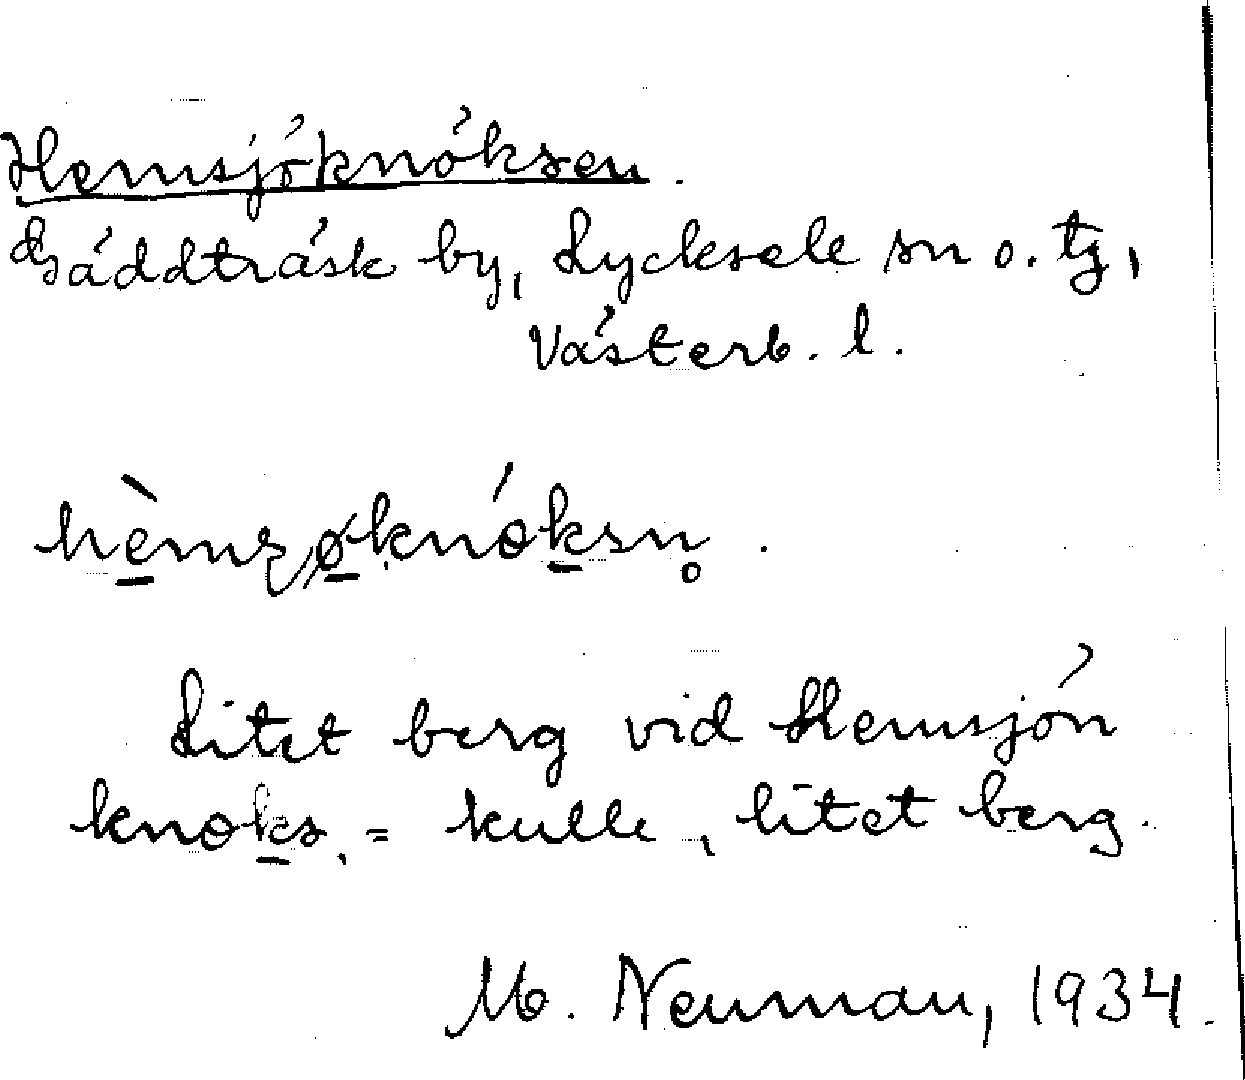 Hemsjöknöksen.
Bäddträsk by, Lycksele sn o. tg,
Västerb. l.
Litet berg vid Hemsjön
knøks, = kulle, litet berg.
M. Neuman, 1934.